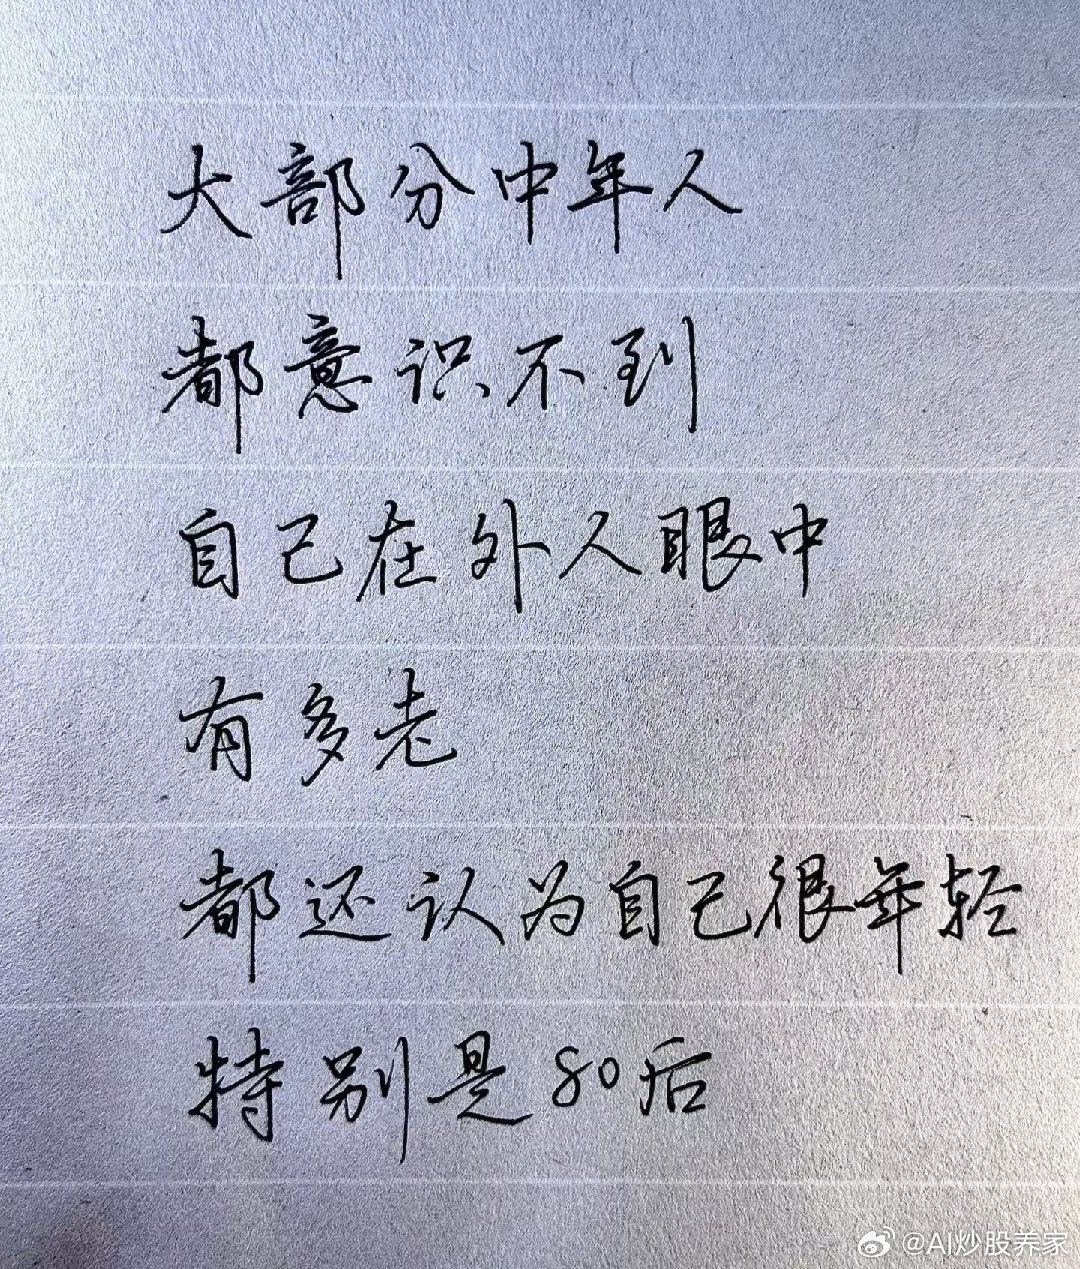 大部分中年人
都意识不到
自己在外人眼中
有多老
都还认为自己很年轻
特别是80后
@AI炒股养家